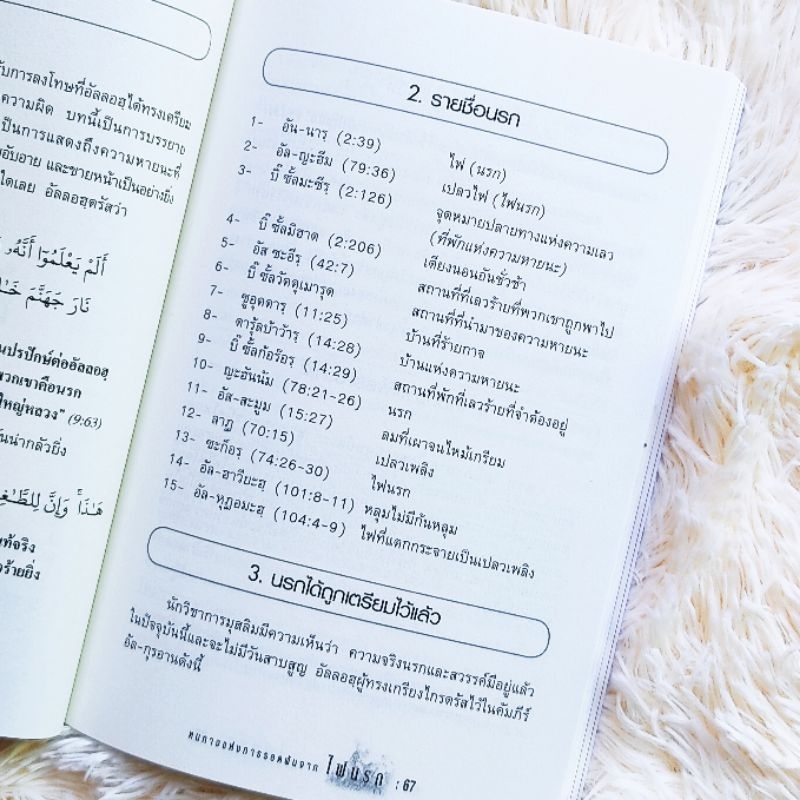 บการลงโทษที่อัลลอฮฺได้ทรงเตรียม
ความผิด บทนี้เป็นการบรรยาย
เป็นการแสดงถึงความหายนะที่
อับอาย และขายหน้าเป็นอย่างยิ่ง
ใดเลย อัลลอฮฺตรัสว่า
أَلَمْ يَعْلَمُوٓا أَنَّهُۥ
نَارَ جَهَنَّمَ
นปรปักษ์ต่ออัลลอฮฺ
พวกเขาคือนรก
ใหญ่หลวง" (9:63)
นน่ากลัวยิ่ง
هَـٰذَا ۚ وَإِنَّ لِلطَّـٰغِ
ท้จริง
ร้ายยิ่ง
2. รายชื่อนรก
1- อัน-นารฺ (2:39) ไฟ (นรก)
2- อัล-ญะฮีม (79:36) เปลวไฟ (ไฟนรก)
3- บิ๊ ซั้ลมะซีรฺ (2:126) จุดหมายปลายทางแห่งความเลว
(ที่พักแห่งความหายนะ)
4- บิ๊ ซั้ลมิฮาด (2:206) เตียงนอนอันชั่วช้า
5- อัส ซะอีรฺ (42:7) สถานที่ที่เลวร้ายที่พวกเขาถูกพาไป
6- บิ๊ ซั้ลวัดดุเมารุด สถานที่ที่นำมาของความหายนะ
7- ซูอุดดารฺ (11:25) บ้านที่ร้ายกาจ
8- ดารุ้ลบ้าว้ารฺ (14:28) บ้านแห่งความหายนะ
9- บิ๊ ซั้ลก้อร้อรฺ (14:29) สถานที่พักที่เลวร้ายที่จำต้องอยู่
10- ญะฮันนัม (78:21-26) นรก
11- อัส-สะมูม (15:27) ลมที่เผาจนไหม้เกรียม
12- ลาฎ (70:15) เปลวเพลิง
13- ซะก็อรฺ (74:26-30) ไฟนรก
14- อัล-ฮาวียะฮฺ (101:8-11) หลุมไม่มีก้นหลุม
15- อัล-หุฏอมะฮฺ (104:4-9) ไฟที่แตกกระจายเป็นเปลวเพลิง
3. นรกได้ถูกเตรียมไว้แล้ว
นักวิชาการมุสลิมมีความเห็นว่า ความจริงนรกและสวรรค์มีอยู่แล้ว
ในปัจจุบันนี้และจะไม่มีวันสาบสูญ อัลลอฮฺผู้ทรงเกรียงไกรตรัสไว้ในคัมภีร์
อัล-กุรอานดังนี้
หนทางแห่งการรอดพ้นจาก ไฟนรก : 67